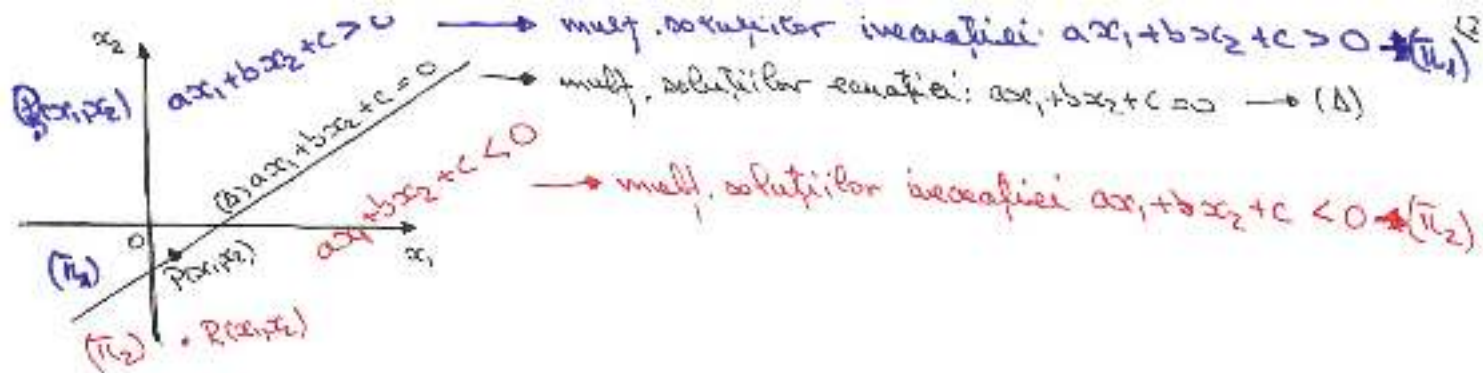 x₂
ax₁+bx₂+c>0 → mulț. soluțiilor inecuației: ax₁+bx₂+c > 0 → (π₁)
(x₁,x₂)
(Δ) ax₁+bx₂+c=0 → mulț. soluțiilor ecuației: ax₁+bx₂+c=0 → (Δ)
ax₁+bx₂+c<0 → mulț. soluțiilor inecuației ax₁+bx₂+c < 0 → (π₂)
0
x₁
(π₁)
P(x₁,x₂)
(π₂) . R(x₁,x₂)